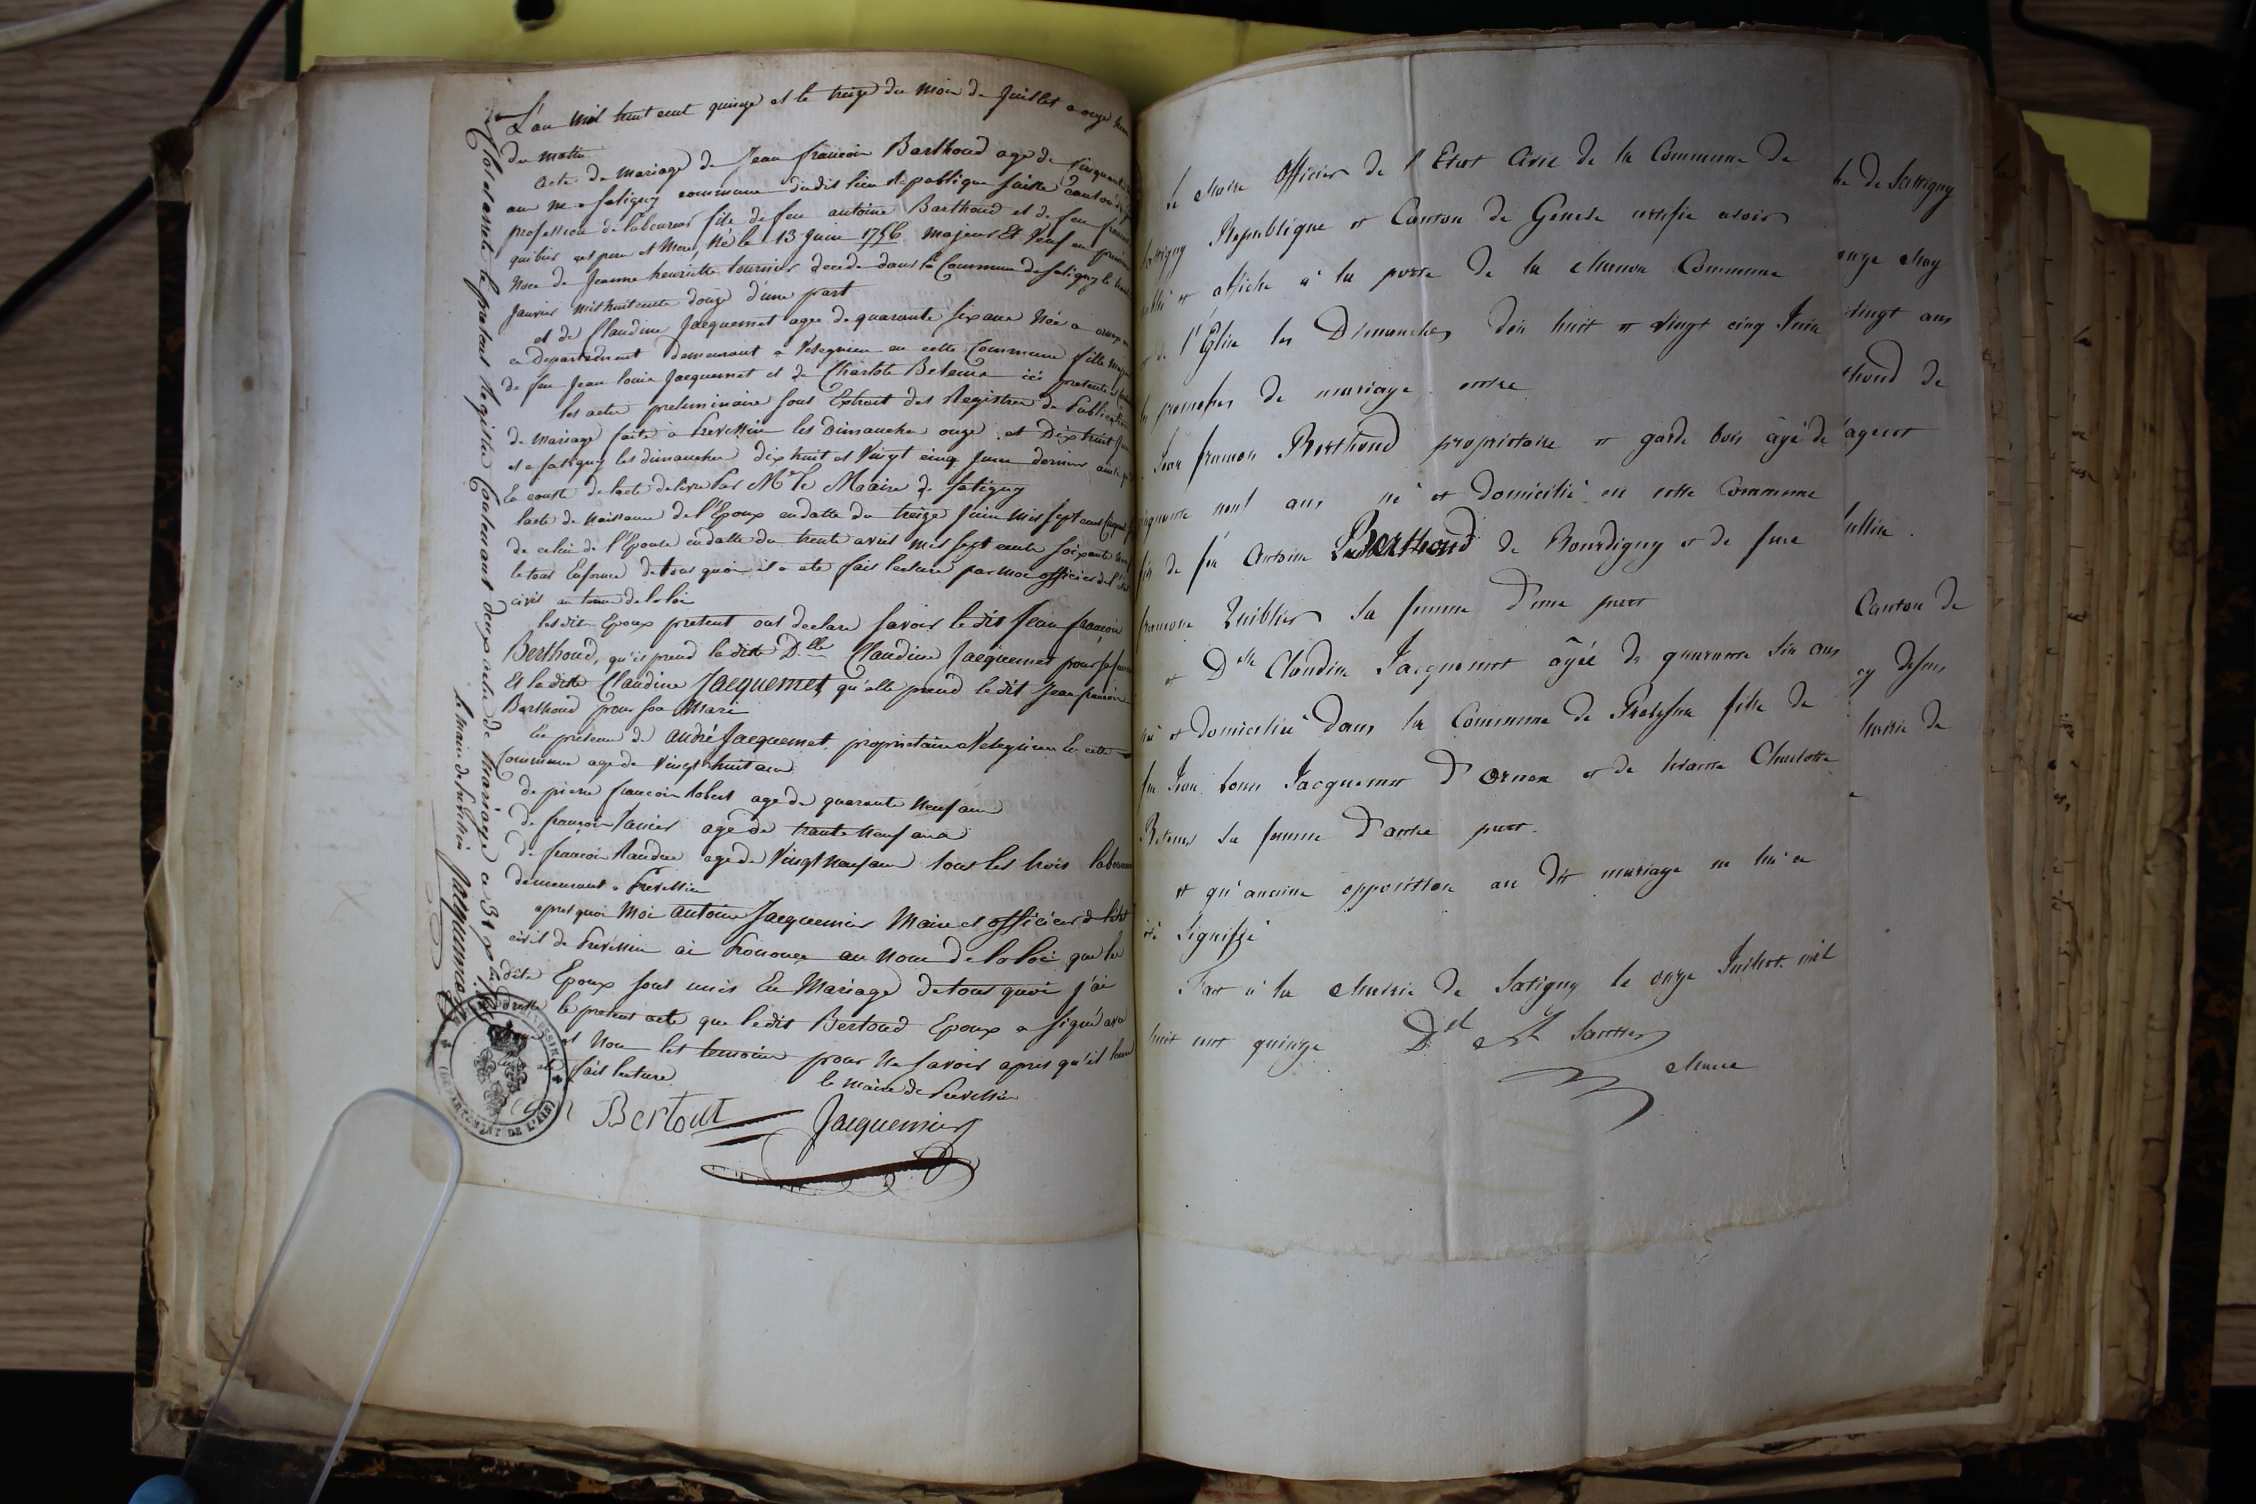 L'an mil huit cent quinze et le treize du mois de Juillet a onze heure
du matin
acte de mariage de Jean françois Berthoud age de Cinquante
au ne a Satigny commune dudit lieu Republique suisse Canton de
profession de laboureur fils de feu antoine Berthoud et de feu
quibier ses pere et Mere, Né le 13 Juin 1756 majeur Et Veuf en premiere
Noce de Jeanne henriette tournier decede dans la Commune de Satigny le
Janvier mil huit cents douze d'une part
et de Claudine Jacquemet agee de quarante six ans Née a ornex
ce departement demeurant a Vesegnien en cette Commune fille majeure
de feu Jean louis Jacquemet et de Charlote Betems ici presente et
les actes preliminaire sont Extrait des Registre de Publication
de mariage faite a Prevessin les dimanche onze et Dix huit
et a Satigny les dimanches dix huit et Vingt cinq Juin dernier
le conste de lacte delivre Par Mr le Maire de Satigny
lacte de naissance de l'Epoux en datte du treize Juin mil sept cent Cinquante
de celui de l'Epouse en datte du trente avril mil sept cents soixante
le tout En forme de tout quoi il a ete fait lecture par moi officier de l'état
civil au terme de la loi
les dit Epoux present ont declare savoir le dit Jean françois
Berthoud, qu'il prend la ditte Dlle Claudine Jacquemet pour sa femme
Et la ditte Claudine Jacquemet qu'elle prend le dit Jean françois
Berthoud pour son Mari
En presence de andré Jacquemet proprietaire a Vesegnien en cette
Commune age de Vingt huit ans
de pierre françois Robert age de quarante Neuf ans
de françois agé de trante Neuf ans
de françois age de Vingt neuf ans tous les trois laboureur
demeurant a Prevessin
apres quoi Moi antoine Jacquemier Maire et officier de l'état
civil de Prevessin ai Prononce au Nom de la loi que les
dits Epoux sont unis En Mariage de tout quoi j'ai
le present acte que le dit Bertoud Epoux a signé avec
et Non les temoins pour Ne savoir apres qu'il leur
ete fait lecture
le maire de Prevessin
Bertout Jacquemier
Clot et arreté le present Registre Contenant deux actes de mariage ce 31
le maire de Prevessin Jacquemier
DEPARTEMENT DE L'AIN
Le Maire Officier de l'Etat Civil de la Commune de
Satigny République et Canton de Genève certifie avoir
publié et affiché à la porte de la Maison Commune
et de l'Eglise les Dimanches dix huit et vingt cinq Juin
les promesses de mariage entre
Jean françois Berthoud propriétaire et garde bois âgé de
cinquante neuf ans né et domicilié en cette Commune
fils de feu Antoine Berthoud de Bourdigny et de feue
françoise Quiblier sa femme d'une part
et Dlle Claudine Jacquemet âgée de quarante six ans
née et domiciliée dans la Commune de Prevessin fille de
feu Jean Louis Jacquemet d'Ornex et de Charlotte
Betems sa femme d'autre part.
et qu'aucune opposition au dit mariage ne lui a
été signifiée
Fait à la Mairie de Satigny le onze Juillet mil
huit cent quinze
Maire
de Satigny
onze May
vingt ans
thoud de
Canton de
cy dessus
Mairie de